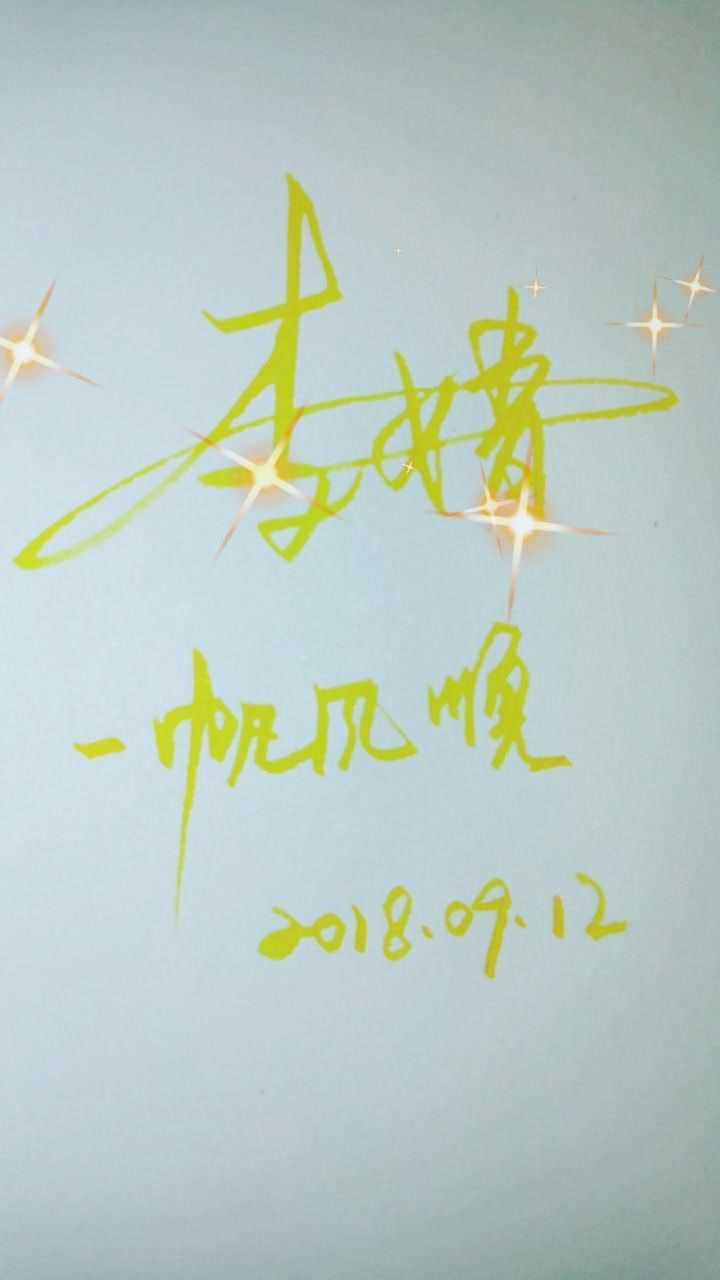 李婧
一帆风顺
2018.09.12